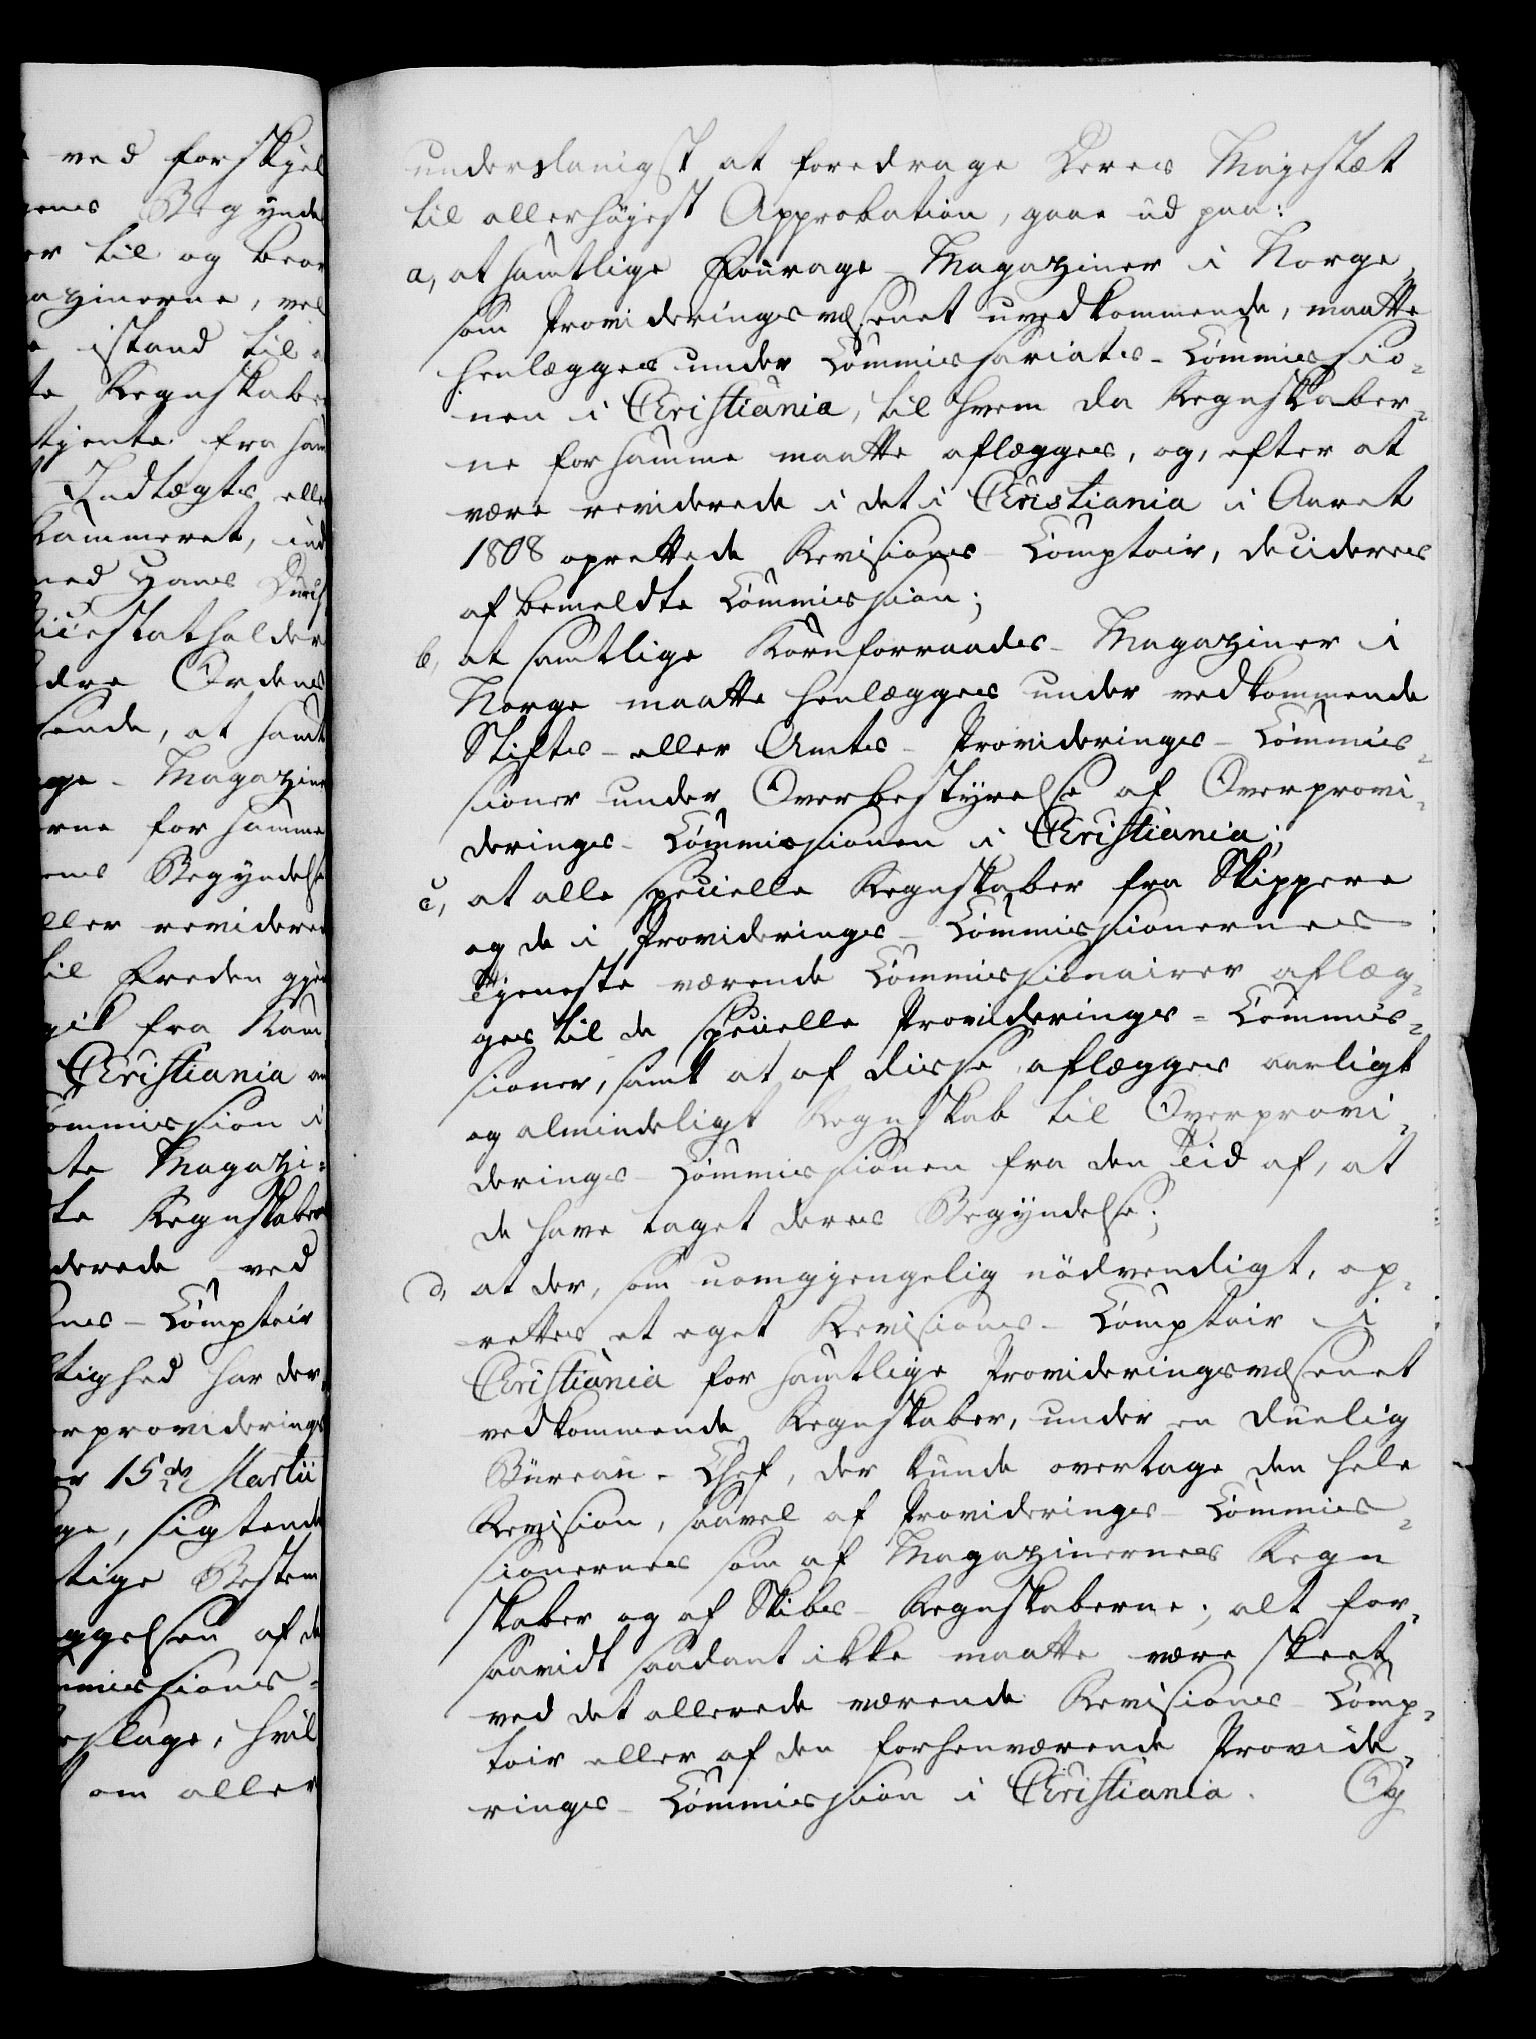 ved forskjel
Begynde
er til og beor
azinerne, vel
istand til
te Regnskabe
tjente fra sam
Indtægts elle
Kammeret, ind
med Hans Durch
Vicestatholder
dre Ordens
sende, at samt
ge - Magazine
rne for samme
ens Begyndelse
ller revidere
til Freden gjen
gik fra Kam
Christiania
ommission i
te Magazi-
te Regnskaber
derede ved
ons - Comptoir
tighed har der
erproviderings
15de Martii
ge, sigtende
tige Bestem
ggelsen af de
mmissions-
slage, hvil
om aller
underdanigst at foredrage Deres Majestæt
til allerhöjest Approbation, gaae ud paa:
a, at samtlige Fourage-Magaziner i Norge,
som Provideringsvæsenet uvedkommende, maatte
henlægges under Commissariats-Commissio-
nen i Christiania, til hvem da Regnskaber-
ne for samme maatte aflægges, og, efter at
være reviderede i det i Christiania i Aaret
1808 oprettede Revisions-Comptoir, decideres
af bemeldte Commission;
b, at samtlige Kornforraads-Magaziner i
Norge maatte henlægges under vedkommende
Stifts- eller Amts-Providerings-Commis-
sioner under Overbestyrelse af Overprovi-
derings-Commissionen i Christiania;
c, at alle specielle Regnskaber fra Skippere
og de i Providerings-Commissionernes
Tjeneste værende Commissionairer aflæg-
ges til de specielle Providerings-Commis-
sioner, samt at af disse aflægges aarligt
og almindeligt Regnskab til Overprovi-
derings-Commissionen fra den Tid af, at
de have taget deres Begyndelse;
d, at der, som uomgjengelig nödvendigt, op-
rettes et eget Revisions-Comptoir i
Christiania for samtlige Provideringsvæsenet
vedkommende Regnskaber, under en duelig
Büreau-Chef, der kunde overtage den hele
Revision, saavel af Providerings-Commis-
sionernes som af Magazinernes Regn
skaber og af Skibs-Regnskaberne; alt for-
saavidt saadant ikke maatte være skeet
ved det allerede værende Revisions-Comp-
toir eller af den forhenværende Provide-
rings-Commission i Christiania. Og